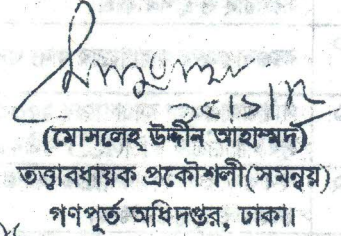 ১৫|১|১২
(মোসলেহ্ উদ্দীন আহাম্মদ)
তত্ত্বাবধায়ক প্রকৌশলী(সমন্বয়)
গণপূর্ত অধিদপ্তর, ঢাকা।